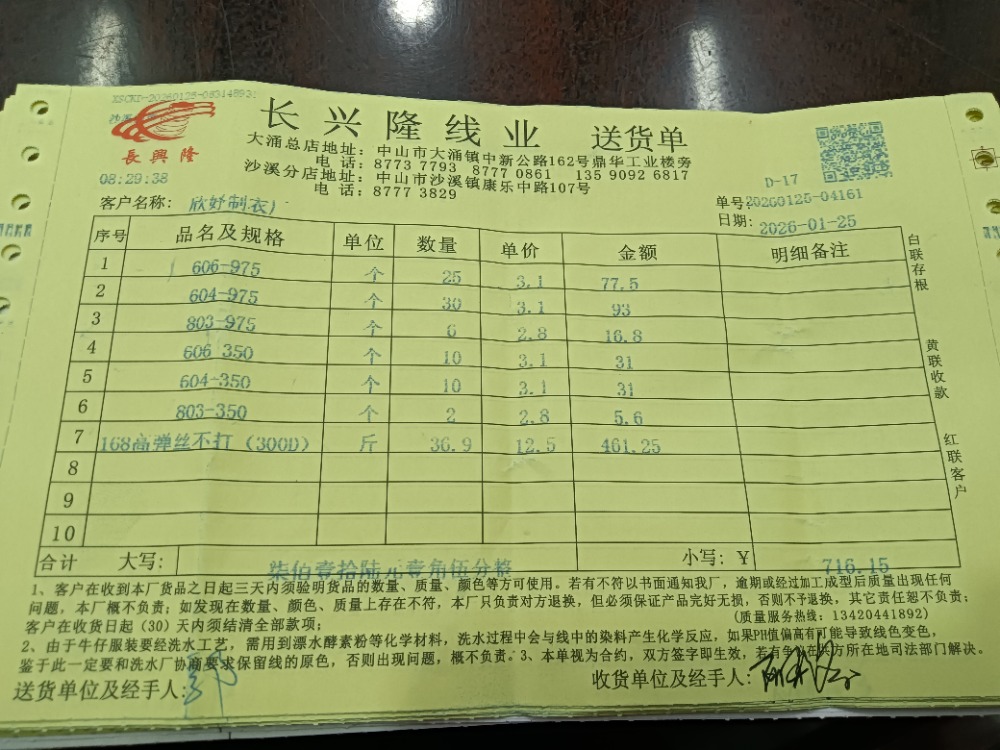 XSCKD-20260125-08314893
長興隆
长兴隆线业 送货单
大涌总店地址：中山市大涌镇中新公路162号鼎华工业楼旁
电 话：8773 7793 8777 0861 135 9092 6817
沙溪分店地址：中山市沙溪镇康乐中路107号
电 话：8777 3829
08:29:38
D-17
客户名称：欣妤制衣厂
单号：20260125-04161
日期：2026-01-25
序号 品名及规格 单位 数量 单价 金额 明细备注
1 606-975 个 25 3.1 77.5
2 604-975 个 30 3.1 93
3 803-975 个 6 2.8 16.8
4 606-350 个 10 3.1 31
5 604-350 个 10 3.1 31
6 803-350 个 2 2.8 5.6
7 168高弹丝不打（300D） 斤 36.9 12.5 461.25
8
9
10
合计 大写：柒佰壹拾陆元壹角伍分 小写：¥ 716.15
白联存根
黄联收款
红联客户
1、客户在收到本厂货品之日起三天内须验明货品的数量、质量、颜色等方可使用。若有不符以书面通知我厂，逾期或经过加工成型后质量出现任何
问题，本厂概不负责；如发现在数量、颜色、质量上存在不符，本厂只负责对方退换，但必须保证产品完好无损，否则不予退换，其它责任恕不负责；
客户在收货日起（30）天内须结清全部款项；
(质量服务热线：13420441892)
2、由于牛仔服装要经洗水工艺，需用到漂水酵素粉等化学材料，洗水过程中会与线中的染料产生化学反应，如果PH值偏高有可能导致线色变色，
鉴于此一定要和洗水厂协商要求保留线的原色，否则出现问题，概不负责。3、本单视为合约，双方签字即生效，若有争议在供方所在地司法部门解决。
送货单位及经手人：
收货单位及经手人：